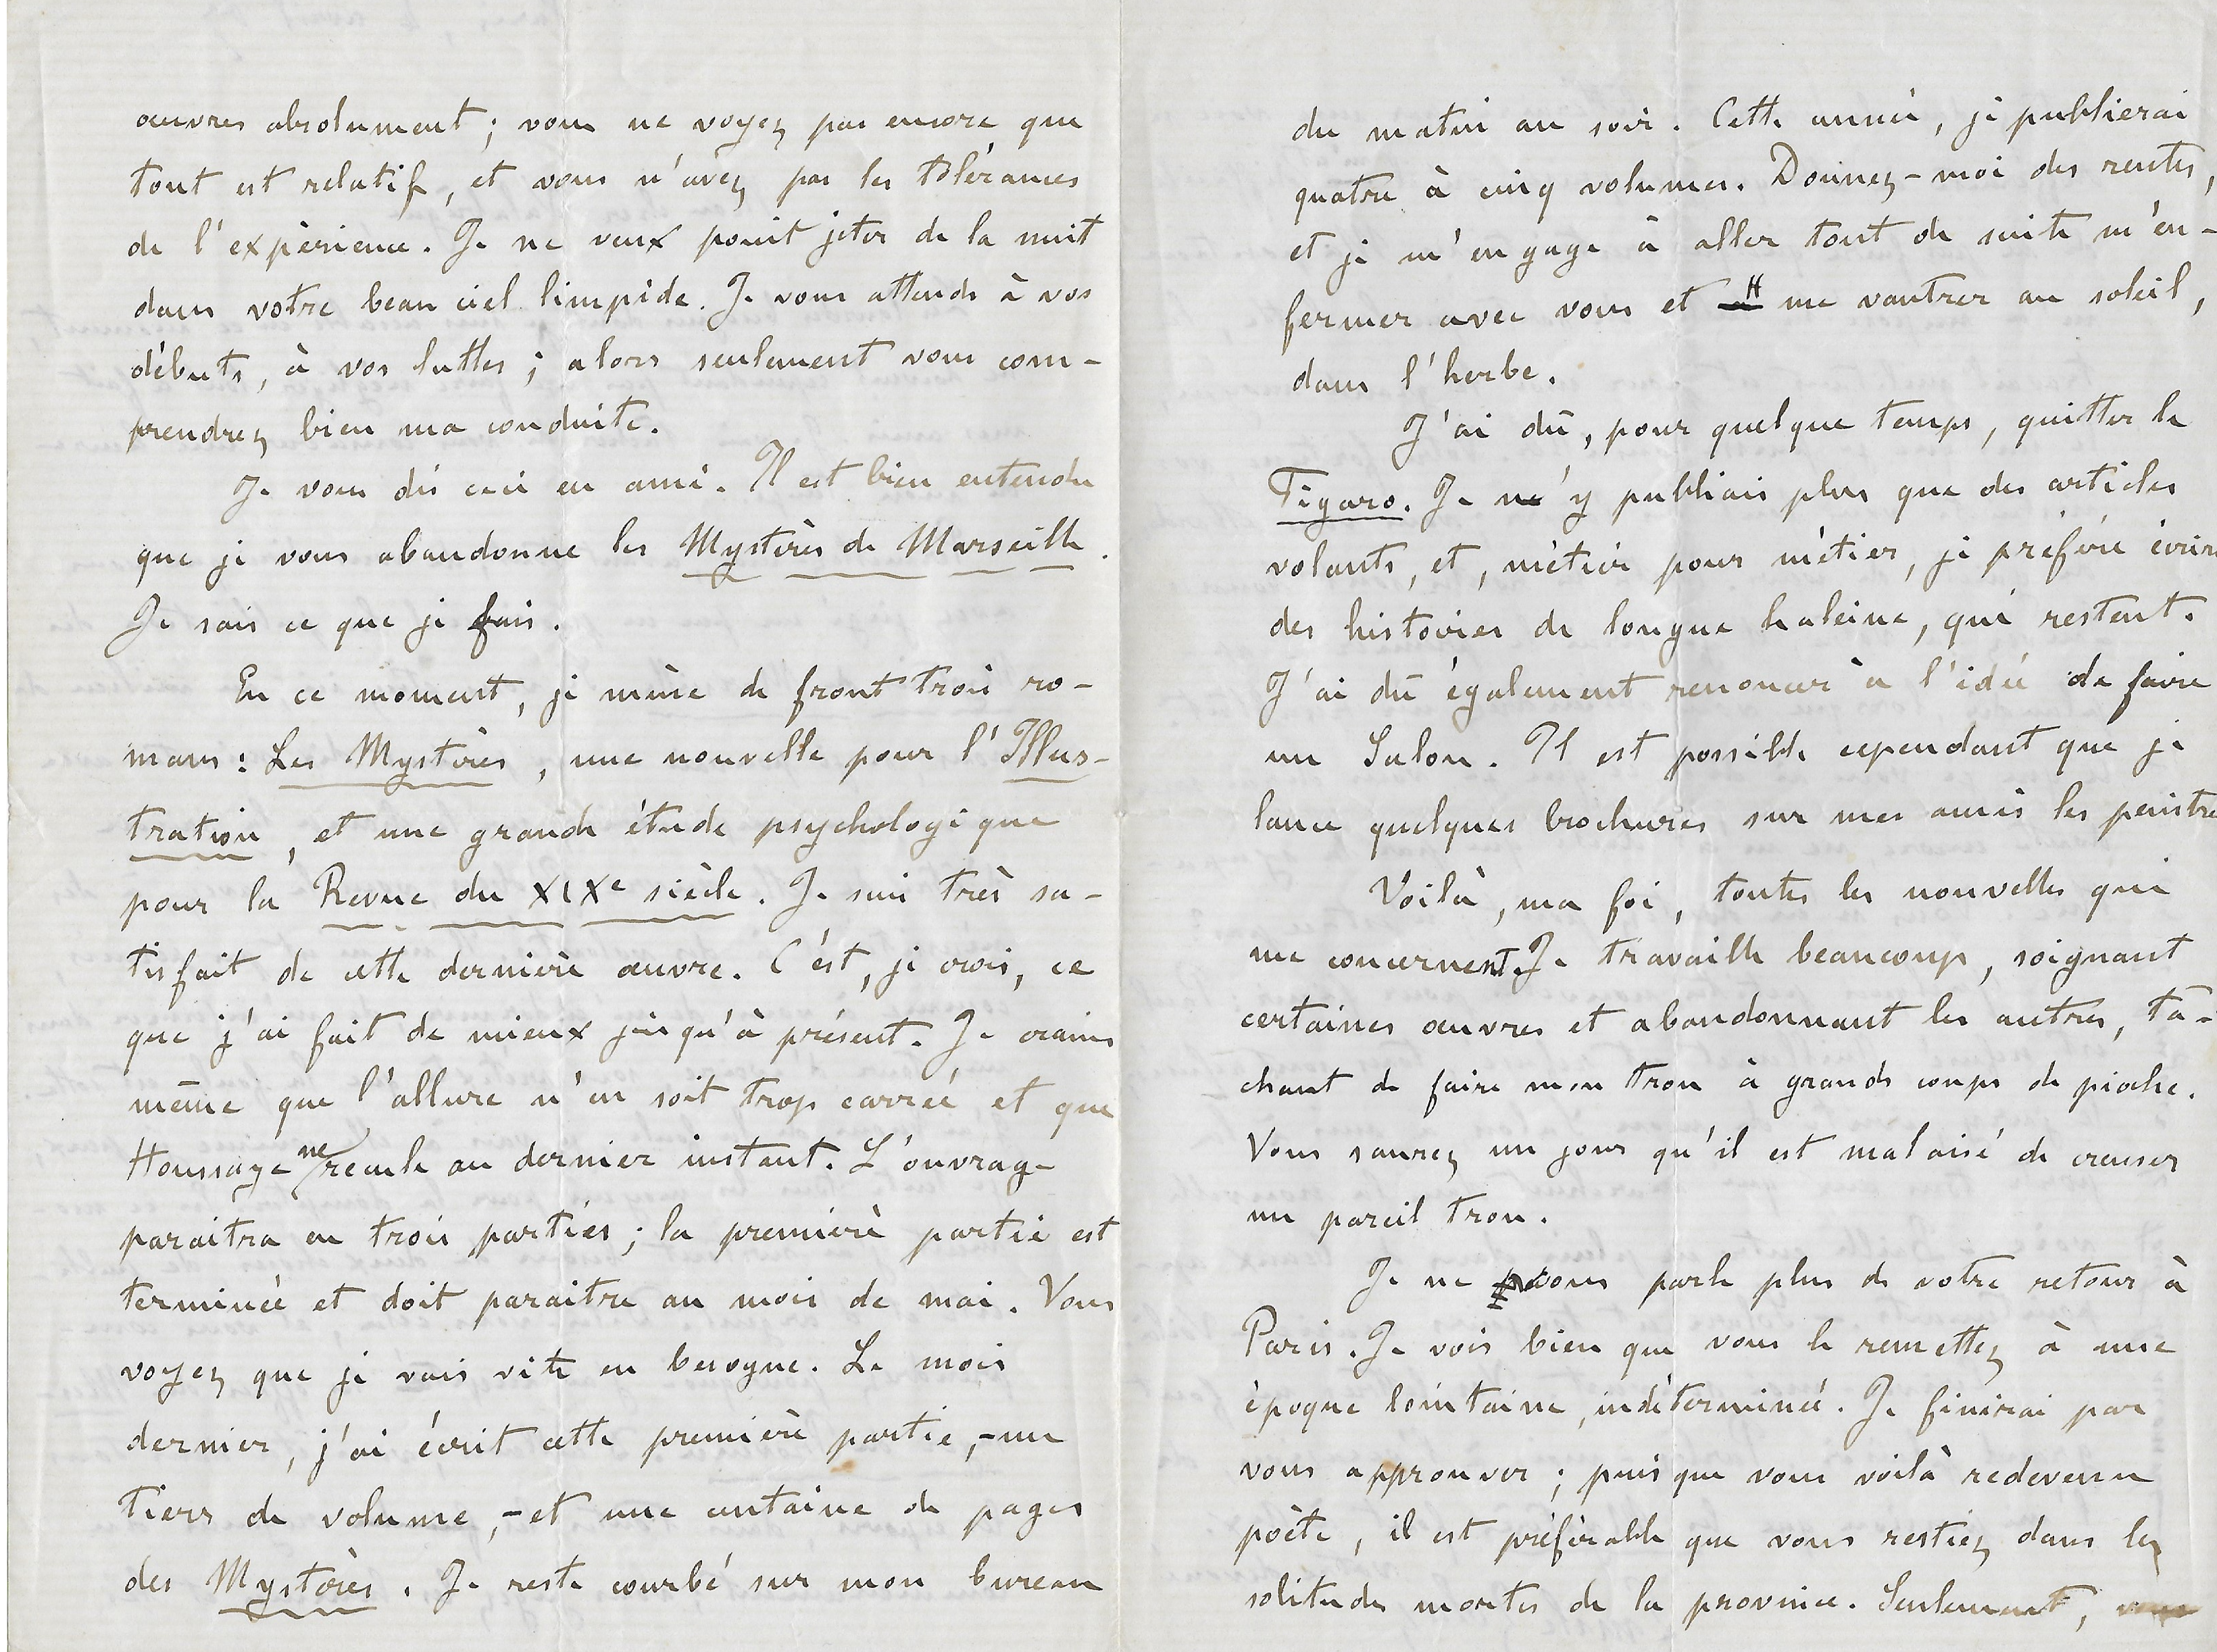 œuvres absolument ; vous ne voyez pas encore que
tout est relatif, et vous n'avez pas les tolérances
de l'expérience. Je ne veux point jeter de la nuit
dans votre beau ciel limpide. Je vous attends à vos
débuts, à vos luttes ; alors seulement vous com-
prendrez bien ma conduite.
Je vous dis ceci en ami. Il est bien entendu
que je vous abandonne les Mystères de Marseille.
Je sais ce que je fais.
En ce moment, je mène de front trois ro-
mans : Les Mystères, une nouvelle pour l'Illus-
tration, et une grande étude psychologique
pour la Revue du XIXe siècle. Je suis très sa-
tisfait de cette dernière œuvre. C'est, je crois, ce
que j'ai fait de mieux jusqu'à présent. Je crains
même que l'allure n'en soit trop carrée et que
Houssaye ne recule au dernier instant. L'ouvrage
paraitra en trois parties ; la première partie est
terminée et doit paraitre au mois de mai. Vous
voyez que je vais vite en besogne. Le mois
dernier, j'ai écrit cette première partie, - un
tiers de volume, - et une centaine de pages
des Mystères. Je reste courbé sur mon bureau
du matin au soir. Cette année, je publierai
quatre à cinq volumes. Donnez-moi des rentes,
et je m'engage à aller tout de suite m'en-
fermer avec vous et me vautrer au soleil,
dans l'herbe.
J'ai dû, pour quelque temps, quitter le
Figaro. Je n'y publiais plus que des articles
volants, et, métier pour métier, je préfère écrire
des histoires de longue haleine, qui restent.
J'ai dû également renoncer à l'idée de faire
un Salon. Il est possible cependant que je
lance quelques brochures sur mes amis les peintres
Voilà, ma foi, toutes les nouvelles qui
me concernent. Je travaille beaucoup, soignant
certaines œuvres et abandonnant les autres, tâ-
chant de faire mon trou à grands coups de pioche.
Vous saurez un jour qu'il est malaisé de creuser
un pareil trou.
Je ne vous parle plus de votre retour à
Paris. Je vois bien que vous le remettez à une
époque lointaine, indéterminée. Je finirai par
vous approuver ; puisque vous voilà redevenu
poète, il est préférable que vous restiez dans les
solitudes mortes de la province. Seulement,